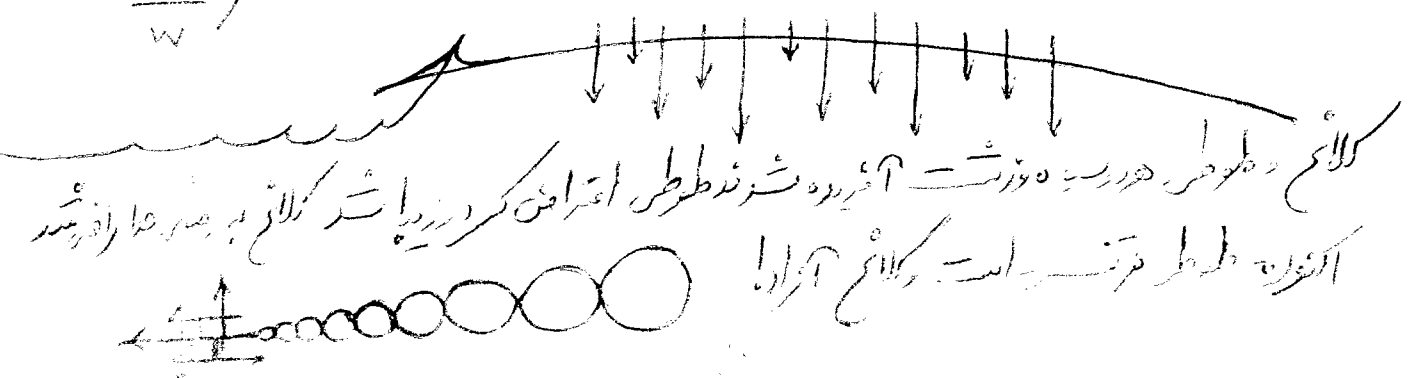 W
کلاغ و طوطی هر دو سیاه و زشت آفریده شدند طوطی اعتراض کرد و زیبا شد کلاغ به رضای خدا راضی شد
اکنون طوطی در قفس است و کلاغ آزاد!